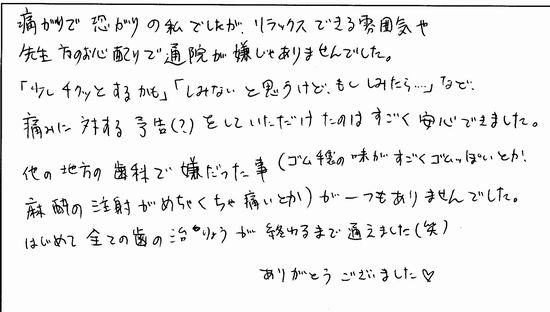 痛がりで恐がりの私でしたが、リラックスできる雰囲気や
先生方のお心配りで通院が嫌じゃありませんでした。
「少しチクッとするかも」「しみないと思うけど、もししみたら…」など、
痛みに対する予告(?)をしていただけたのはすごく安心できました。
他の地方の歯科で嫌だった事(ゴム手袋の味がすごくゴムっぽいとか、
麻酔の注射がめちゃくちゃ痛いとか)が一つもありませんでした。
はじめて全ての歯の治りょうが終わるまで通えました(笑)
ありがとうございました♡